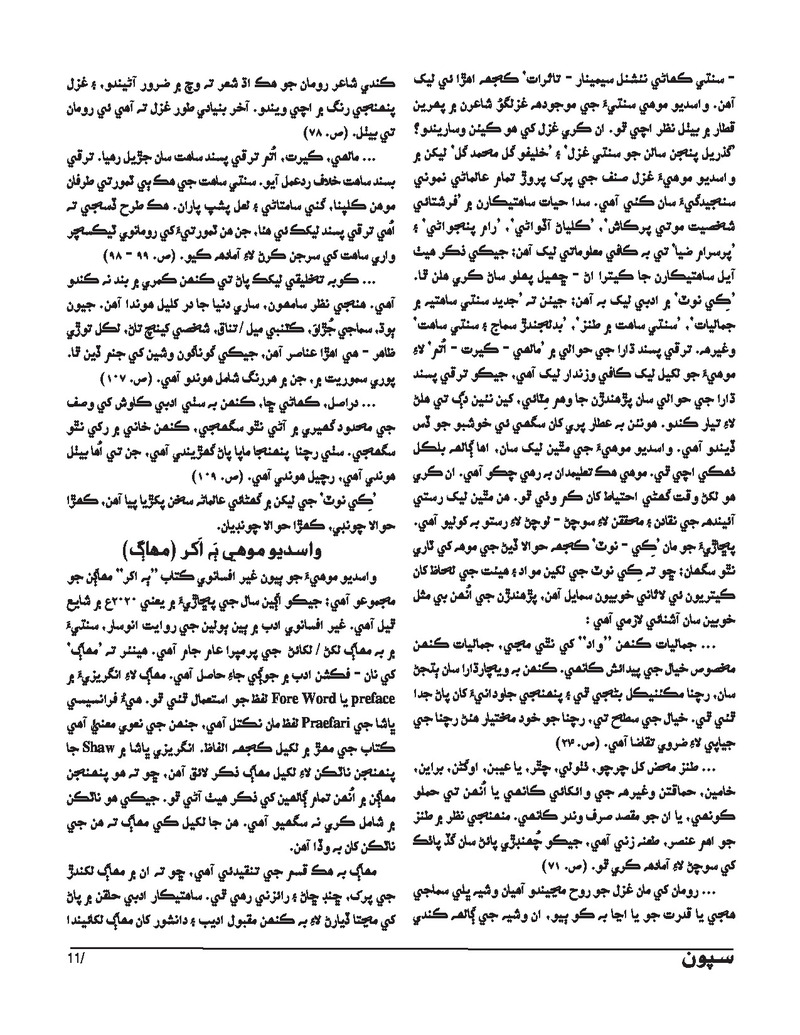 - سنڌي ڪهاڻي نئشنل سيمينار - تاثرات‘ ڪجهه اهڙا ئي ليک
آهن. واسديو موهي سنڌيءَ جي موجودهه غزلگوُ شاعرن ۾ پهرين
قطار ۾ بيٺل نظر اچي ٿو. ان ڪري غزل کي هو ڪيئن وساريندو؟
’گذريل پنجن سالن جو سنڌي غزل‘ ۽ ’خليفو گل محمد گل‘ ليکن ۾
واسديو موهيءَ غزل صنف جي پرک پروڙ تمام عالماڻي نموني
سنجيدگيءَ سان ڪئي آهي. سدا حيات ساهتيڪارن ۾ ’فرشتائي
شخصيت موتي پرڪاش‘، ’ڪلياڻ آڏواڻي‘، ’رام پنجواڻي‘ ۽
’پرسرام ضيا‘ تي به ڪافي معلوماتي ليک آهن؛ جيڪي ذڪر هيٺ
آيل ساهتيڪارن جا ڪيترا اڻ - ڇهيل پهلو ساڻ ڪري هلن ٿا.
’ڪِي نوٽ‘ ۾ ادبي ليک به آهن؛ جيئن ته ’جديد سنڌي ساهتيه ۾
جماليات‘، ’سنڌي ساهت ۾ طنز‘، ’بدلجندڙ سماج ۽ سنڌي ساهت‘
وغيرهه. ترقي پسند ڌارا جي حوالي ۾ ’مالهي - ڪيرت - اُتم‘ لاءِ
موهيءَ جو لکيل ليک ڪافي وزندار ليک آهي، جيڪو ترقي پسند
ڌارا جي حوالي سان پڙهندڙن جا وهم مِٽائي، کين نئين دڳ تي هلڻ
لاءِ تيار ڪندو. هونئن به عطار پري کان سگهي ئي خوشبو جو ڏس
ڏيندو آهي. واسديو موهيءَ جي مٿين ليک سان، اها ڳالهه بلڪل
ٺهڪي اچي ٿي. موهي هڪ تعليمدان به رهي چڪو آهي. ان ڪري
هو لکڻ وقت گهڻي احتياط کان ڪم وٺي ٿو. هن مٿين ليک رستي
آئيندهه جي نقادن ۽ محققن لاءِ سوچڻ - لوچڻ لاءِ رستو به کوليو آهي.
پڇاڙيءَ جو مان ’ڪِي - نوٽ‘ ڪجهه حوالا ڏيڻ جي موهه کي ٽاري
نٿو سگهان؛ ڇو ته ڪِي نوٽ جي لکين مواد ۽ هيئت جي لحاظ کان
ڪيتريون ئي لاثاني خوبيون سمايل آهن، پڙهندڙن جي اُنهن بي مثل
خوبين سان آشنائي لازمي آهي :
... جماليات ڪنهن ’’واد‘‘ کي نٿي مڃي، جماليات ڪنهن
مخصوص خيال جي پيدائش ڪانهي. ڪنهن به ويچارڌارا سان ٻڌجڻ
سان، رچنا مڪنيڪل بڻجي ٿي ۽ پنهنجي جاودانيءَ کان پاڻ جدا
ٿئي ٿي. خيال جي سطح تي، رچنا جو خود مختيار هئڻ رچنا جي
جياپي لاءِ ضروي تقاضا آهي. (ص. ۲۴)
... طنز محض کل چرچو، ٺٺولي، چٿر، يا عيبن، اوگڻن، براين،
خامين، حماقتن وغيرهه جي وائکائي ڪانهي يا اُنهن تي حملو
ڪونهي، يا ان جو مقصد صرف وندر ڪانهي. منهنجي نظر ۾ طنز
جو اهم عنصر، طعنه زني آهي، جيڪو چُهنبڙي پائڻ سان گڏ پاٺڪ
کي سوچڻ لاءِ آمادهه ڪري ٿو. (ص. ۷۱)
... رومان کي مان غزل جو روح مڃيندو آهيان وشيه ڀلي سماجي
هجي يا قدرت جو يا اڃا به ڪو ٻيو، ان وشيه جي ڳالهه ڪندي
ڪندي شاعر رومان جو هڪ اڌ شعر ته وچ ۾ ضرور آڻيندو، ۽ غزل
پنهنجي رنگ ۾ اچي ويندو. آخر بنيادي طور غزل ته آهي ئي رومان
تي بيٺل. (ص. ۷۸)
... مالهي، ڪيرت، اُتم ترقي پسند ساهت سان جڙيل رهيا. ترقي
پسند ساهت خلاف ردعمل آيو. سنڌي ساهت جي هڪ ٻي ٽمورتي طرفان
موهن ڪلپنا، گني سامتاڻي ۽ لعل پشپ پاران. هڪ طرح ڏسجي ته
اُهي ترقي پسند ليکڪ ئي هئا، جن هن ٽمورتيءَ کي رومانوي ٽيڪسچر
واري ساهت کي سرجن ڪرڻ لاءِ آمادهه ڪيو. (ص. ۹۹ - ۹۸)
... ڪوبه تخليقي ليکڪ پاڻ تي ڪنهن ڪمري ۾ بند نه ڪندو
آهي. هنجي نظر سامهون، ساري دنيا جا در کليل هوندا آهن. جيون
ٻوڌ، سماجي جُڙاو، ڪٽنبي ميل / تناو، شخصي کينچ تاڻ، لڪل توڙي
ظاهر - هي اهڙا عناصر آهن، جيڪي گوناگون وشين کي جنم ڏين ٿا.
پوري سمورِيت ۾، جن ۾ هررنگ شامل هوندو آهي. (ص. ۱۰۷)
... دراصل، ڪهاڻي ڇا، ڪنهن به سٺي ادبي ڪاوش کي وصف
جي محدود گهيري ۾ آڻي نٿو سگهجي، ڪنهن خاني ۾ رکي نٿو
سگهجي. سٺي رچنا پنهنجا ماپا پاڻ گهڙيندي آهي، جن تي اُها بيٺل
هوندي آهي، رچيل هوندي آهي. (ص. ۱۰۹)
’ڪِي نوٽ‘ جي ليکن ۾ گهڻائي عالماڻه سخن پکڙيا پيا آهن، ڪهڙا
حوالا چونڊبي، ڪهڙا حوالا چونڊيان.
واسديو موهي ٻَه اَکر (مهاڳ)
واسديو موهيءَ جو ٻيون غير افسانوي ڪتاب ’’ٻه اکر‘‘ مهاڳن جو
مجموعو آهي؛ جيڪو اڳين سال جي پڇاڙيءَ ۾ يعني ۲۰۲۰ع ۾ شايع
ٿيل آهي. غير افسانوي ادب ۾ ٻين ٻولين جي روايت انوسار، سنڌيءَ
۾ به مهاڳ لکڻ / لکائڻ جي پرمپرا عام جام آهي. هينئر ته ’مهاڳ‘
کي نان - فڪشن ادب ۾ جوڳي جاءِ حاصل آهي. مهاڳ لاءِ انگريزيءَ ۾
preface يا Fore Word لفظ جو استعمال ٿئي ٿو. هيءُ فرانسيسي
ڀاشا جي Praefari لفظ مان نڪتل آهي، جنهن جي لغوي معنيٰ آهي
ڪتاب جي مهڙ ۾ لکيل ڪجهه الفاظ. انگريزي ڀاشا ۾ Shaw جا
پنهنجن ناٽڪن لاءِ لکيل مهاڳ ذڪر لائق آهن، ڇو ته هو پنهنجن
مهاڳن ۾ اُنهن تمام ڳالهين کي ذڪر هيٺ آڻي ٿو. جيڪي هو ناٽڪن
۾ شامل ڪري نه سگهيو آهي. هن جا لکيل ڪي مهاڳ ته هن جي
ناٽڪن کان به وڏا آهن.
مهاڳ به هڪ قسم جي تنقيدئي آهي، ڇو ته ان ۾ مهاڳ لکندڙ
جي پرک، ڇنڊ ڇاڻ ۽ رائزني رهي ٿي. ساهتيڪار ادبي حلقن ۾ پاڻ
کي مڃتا ڏيارڻ لاءِ به ڪنهن مقبول اديب ۽ دانشور کان مهاڳ لکائيندا
سپون
11/